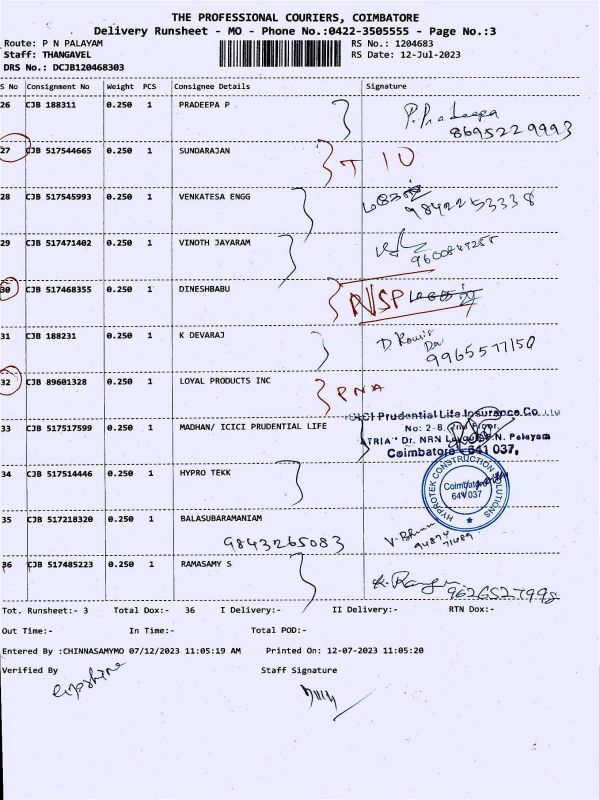 THE PROFESSIONAL COURIERS, COIMBATORE
Delivery Runsheet - MO - Phone No.:0422-3505555 - Page No.:3
Route: P N PALAYAM RS No.: 1204683
Staff: THANGAVEL RS Date: 12-Jul-2023
DRS No.: DCJB120468303
S No Consignment No Weight PCS Consignee Details Signature
26 CJB 188311 0.250 1 PRADEEPA P P.Pradeepa
8695229993
27 CJB 517544665 0.250 1 SUNDARAJAN
28 CJB 517545993 0.250 1 VENKATESA ENGG
9842253338
29 CJB 517471402 0.250 1 VINOTH JAYARAM
9600847255
30 CJB 517468355 0.250 1 DINESHBABU
31 CJB 188231 0.250 1 K DEVARAJ
9965577150
32 CJB 89601328 0.250 1 LOYAL PRODUCTS INC PNA
ICICI Prudential Life Insurance Co. Ltd
33 CJB 517517599 0.250 1 MADHAN/ ICICI PRUDENTIAL LIFE No: 2-8, 2nd Floor,
"ATRIA" Dr. NRN Layout P.N. Palayam
Coimbatore - 641 037.
34 CJB 517514446 0.250 1 HYPRO TEKK
HYPROTEK CONSTRUCTION SOLUTIONS
Coimbatore
641 037
35 CJB 517218320 0.250 1 BALASUBARAMANIAM
9843265083
36 CJB 517485223 0.250 1 RAMASAMY S
Tot. Runsheet:- 3 Total Dox:- 36 I Delivery:- II Delivery:- RTN Dox:-
Out Time:- In Time:- Total POD:-
Entered By :CHINNASAMYMO 07/12/2023 11:05:19 AM Printed On: 12-07-2023 11:05:20
Verified By Staff Signature